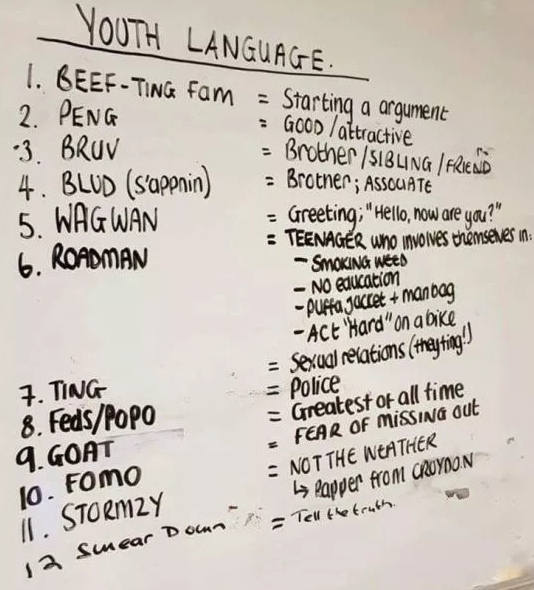 YOUTH LANGUAGE.
1. BEEF-TING Fam = Starting a argument
2. PENG = GOOD/attractive
3. BRUV = Brother/SIBLING/FRIEND
4. BLUD (s'appnin) = Brother; ASSOCIATE
5. WAGWAN = Greeting; "Hello, how are you?"
6. ROADMAN = TEENAGER who involves themselves in:
- SMOKING WEED
- NO education
- puffa jacket + manbag
- ACT "Hard" on a bike
7. TING = Sexual relations (theyting!)
8. Feds/POPO = Police
9. GOAT = Greatest of all time
10. FOMO = FEAR OF MISSING OUT
11. STORMZY = NOT THE WEATHER
↳ Rapper from CROYDON
12 Swear Down = Tell the truth.